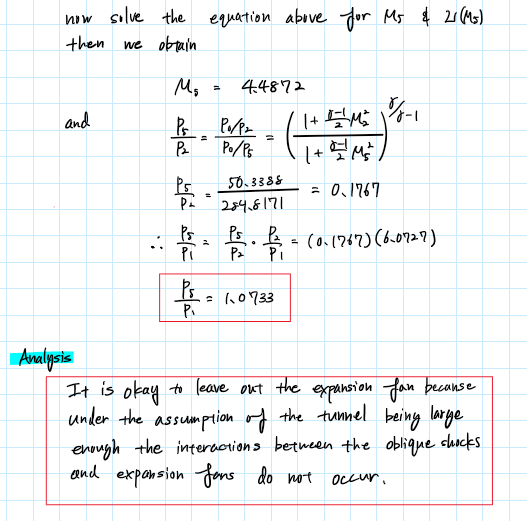 now solve the equation above for M₅ & ν(M₅)
then we obtain
M₅ = 4.4872
and P₅/P₂ = (P₀/P₂)/(P₀/P₅) = ((1 + (γ-1)/2 M₂²)/(1 + (γ-1)/2 M₅²))^(γ/γ-1)
P₅/P₂ = 50.3388/284.8171 = 0.1767
∴ P₅/P₁ = P₅/P₂ · P₂/P₁ = (0.1767)(6.0727)
P₅/P₁ = 1.0733
Analysis
It is okay to leave out the expansion fan because
under the assumption of the tunnel being large
enough the interactions between the oblique shocks
and expansion fans do not occur.